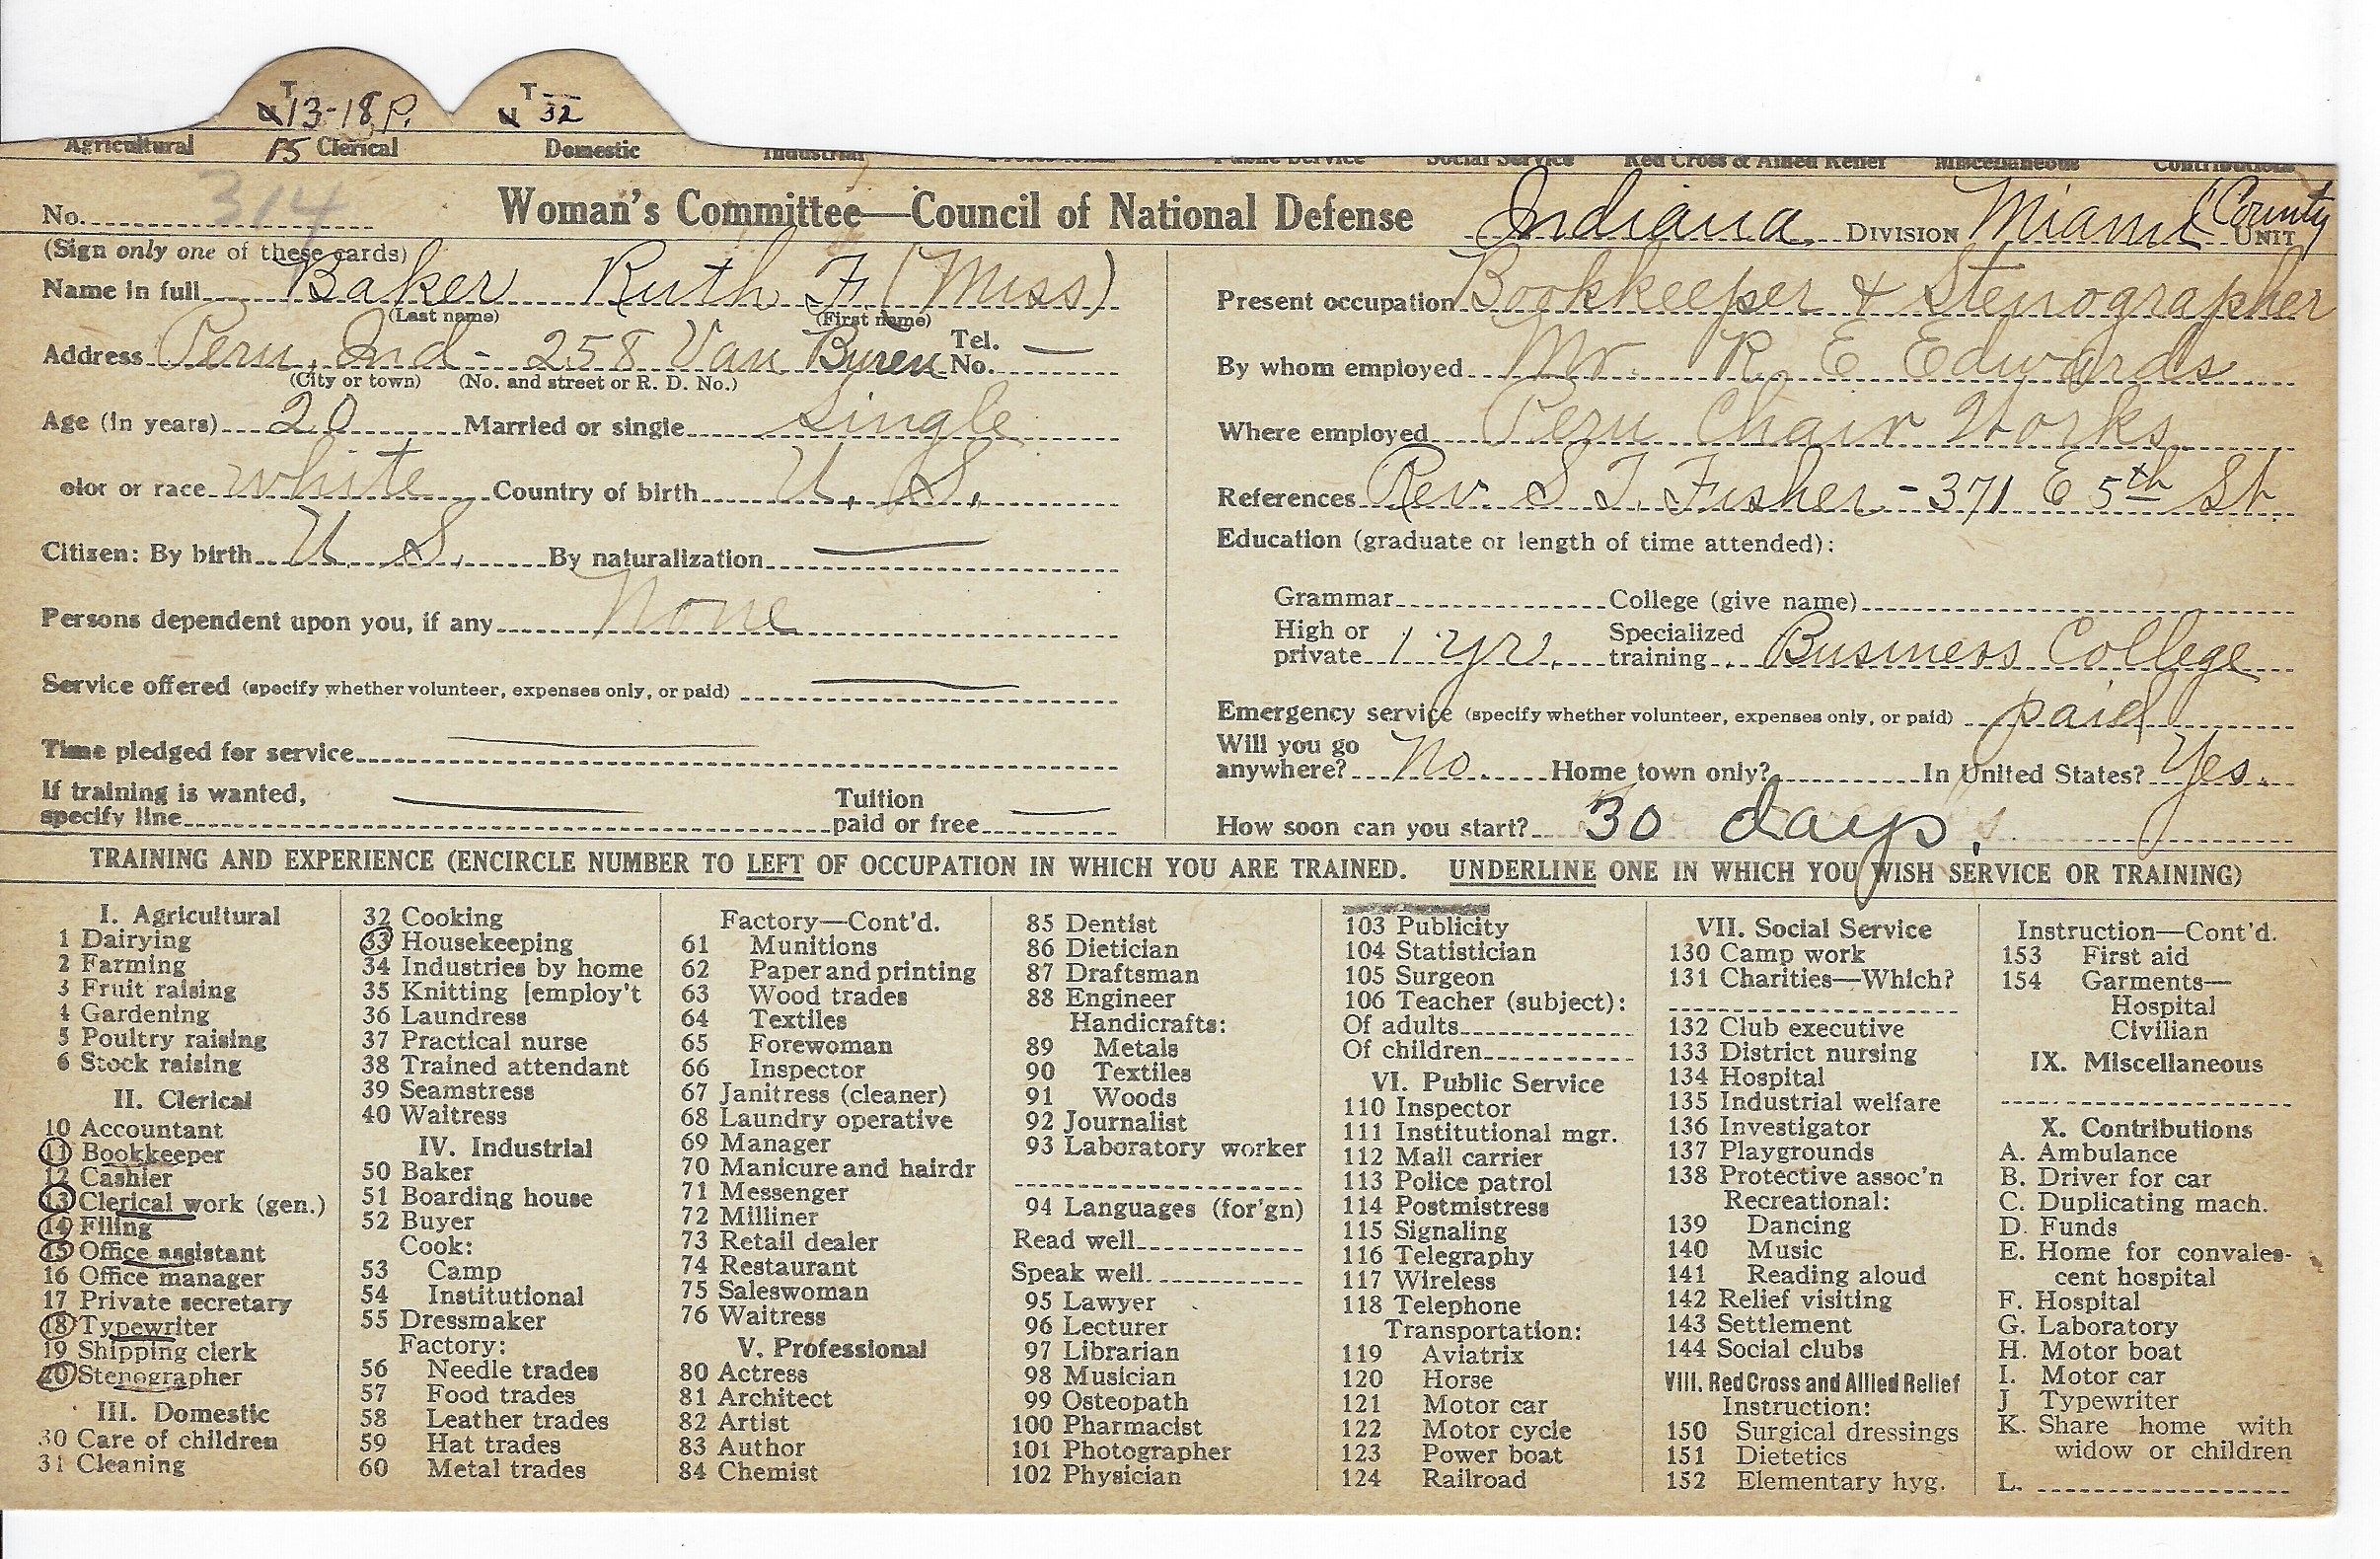 T T
13-18 P. 32
Agricultural 15 Clerical Domestic Industrial Professional Public Service Social Service Red Cross & Allied Relief Miscellaneous Contributions
No. 314 Woman's Committee—Council of National Defense Indiana. DIVISION Miami (County UNIT
(Sign only one of these cards)
Name in full Baker Ruth F. (Miss)
(Last name) (First name)
Address Peru, Ind - 258 Van Buren Tel. No. —
(City or town) (No. and street or R. D. No.)
Age (in years) 20 Married or single Single
olor or race white Country of birth U. S.
Citizen: By birth U. S. By naturalization —
Persons dependent upon you, if any None
Service offered (specify whether volunteer, expenses only, or paid) —
Time pledged for service —
If training is wanted, specify line — Tuition paid or free —
Present occupation Bookkeeper & Stenographer
By whom employed Mr. R E Edwards
Where employed Peru Chair Works
References Rev. S T. Fisher - 371 E 5th St.
Education (graduate or length of time attended):
Grammar College (give name)
High or private 1 yr. Specialized training Business College
Emergency service (specify whether volunteer, expenses only, or paid) paid
Will you go anywhere? No. Home town only? In United States? Yes.
How soon can you start? 30 days.
TRAINING AND EXPERIENCE (ENCIRCLE NUMBER TO LEFT OF OCCUPATION IN WHICH YOU ARE TRAINED. UNDERLINE ONE IN WHICH YOU WISH SERVICE OR TRAINING)
I. Agricultural
1 Dairying
2 Farming
3 Fruit raising
4 Gardening
5 Poultry raising
6 Stock raising
II. Clerical
10 Accountant
11 Bookkeeper
12 Cashier
13 Clerical work (gen.)
14 Filing
15 Office assistant
16 Office manager
17 Private secretary
18 Typewriter
19 Shipping clerk
20 Stenographer
III. Domestic
30 Care of children
31 Cleaning
32 Cooking
33 Housekeeping
34 Industries by home
35 Knitting [employ't
36 Laundress
37 Practical nurse
38 Trained attendant
39 Seamstress
40 Waitress
IV. Industrial
50 Baker
51 Boarding house
52 Buyer
Cook:
53 Camp
54 Institutional
55 Dressmaker
Factory:
56 Needle trades
57 Food trades
58 Leather trades
59 Hat trades
60 Metal trades
Factory—Cont'd.
61 Munitions
62 Paper and printing
63 Wood trades
64 Textiles
65 Forewoman
66 Inspector
67 Janitress (cleaner)
68 Laundry operative
69 Manager
70 Manicure and hairdr
71 Messenger
72 Milliner
73 Retail dealer
74 Restaurant
75 Saleswoman
76 Waitress
V. Professional
80 Actress
81 Architect
82 Artist
83 Author
84 Chemist
85 Dentist
86 Dietician
87 Draftsman
88 Engineer
Handicrafts:
89 Metals
90 Textiles
91 Woods
92 Journalist
93 Laboratory worker
94 Languages (for'gn)
Read well
Speak well
95 Lawyer
96 Lecturer
97 Librarian
98 Musician
99 Osteopath
100 Pharmacist
101 Photographer
102 Physician
103 Publicity
104 Statistician
105 Surgeon
106 Teacher (subject):
Of adults
Of children
VI. Public Service
110 Inspector
111 Institutional mgr.
112 Mail carrier
113 Police patrol
114 Postmistress
115 Signaling
116 Telegraphy
117 Wireless
118 Telephone
Transportation:
119 Aviatrix
120 Horse
121 Motor car
122 Motor cycle
123 Power boat
124 Railroad
VII. Social Service
130 Camp work
131 Charities—Which?
132 Club executive
133 District nursing
134 Hospital
135 Industrial welfare
136 Investigator
137 Playgrounds
138 Protective assoc'n
Recreational:
139 Dancing
140 Music
141 Reading aloud
142 Relief visiting
143 Settlement
144 Social clubs
VIII. Red Cross and Allied Relief
Instruction:
150 Surgical dressings
151 Dietetics
152 Elementary hyg.
Instruction—Cont'd.
153 First aid
154 Garments—
Hospital
Civilian
IX. Miscellaneous
X. Contributions
A. Ambulance
B. Driver for car
C. Duplicating mach.
D. Funds
E. Home for convales-
cent hospital
F. Hospital
G. Laboratory
H. Motor boat
I. Motor car
J Typewriter
K. Share home with
widow or children
L.